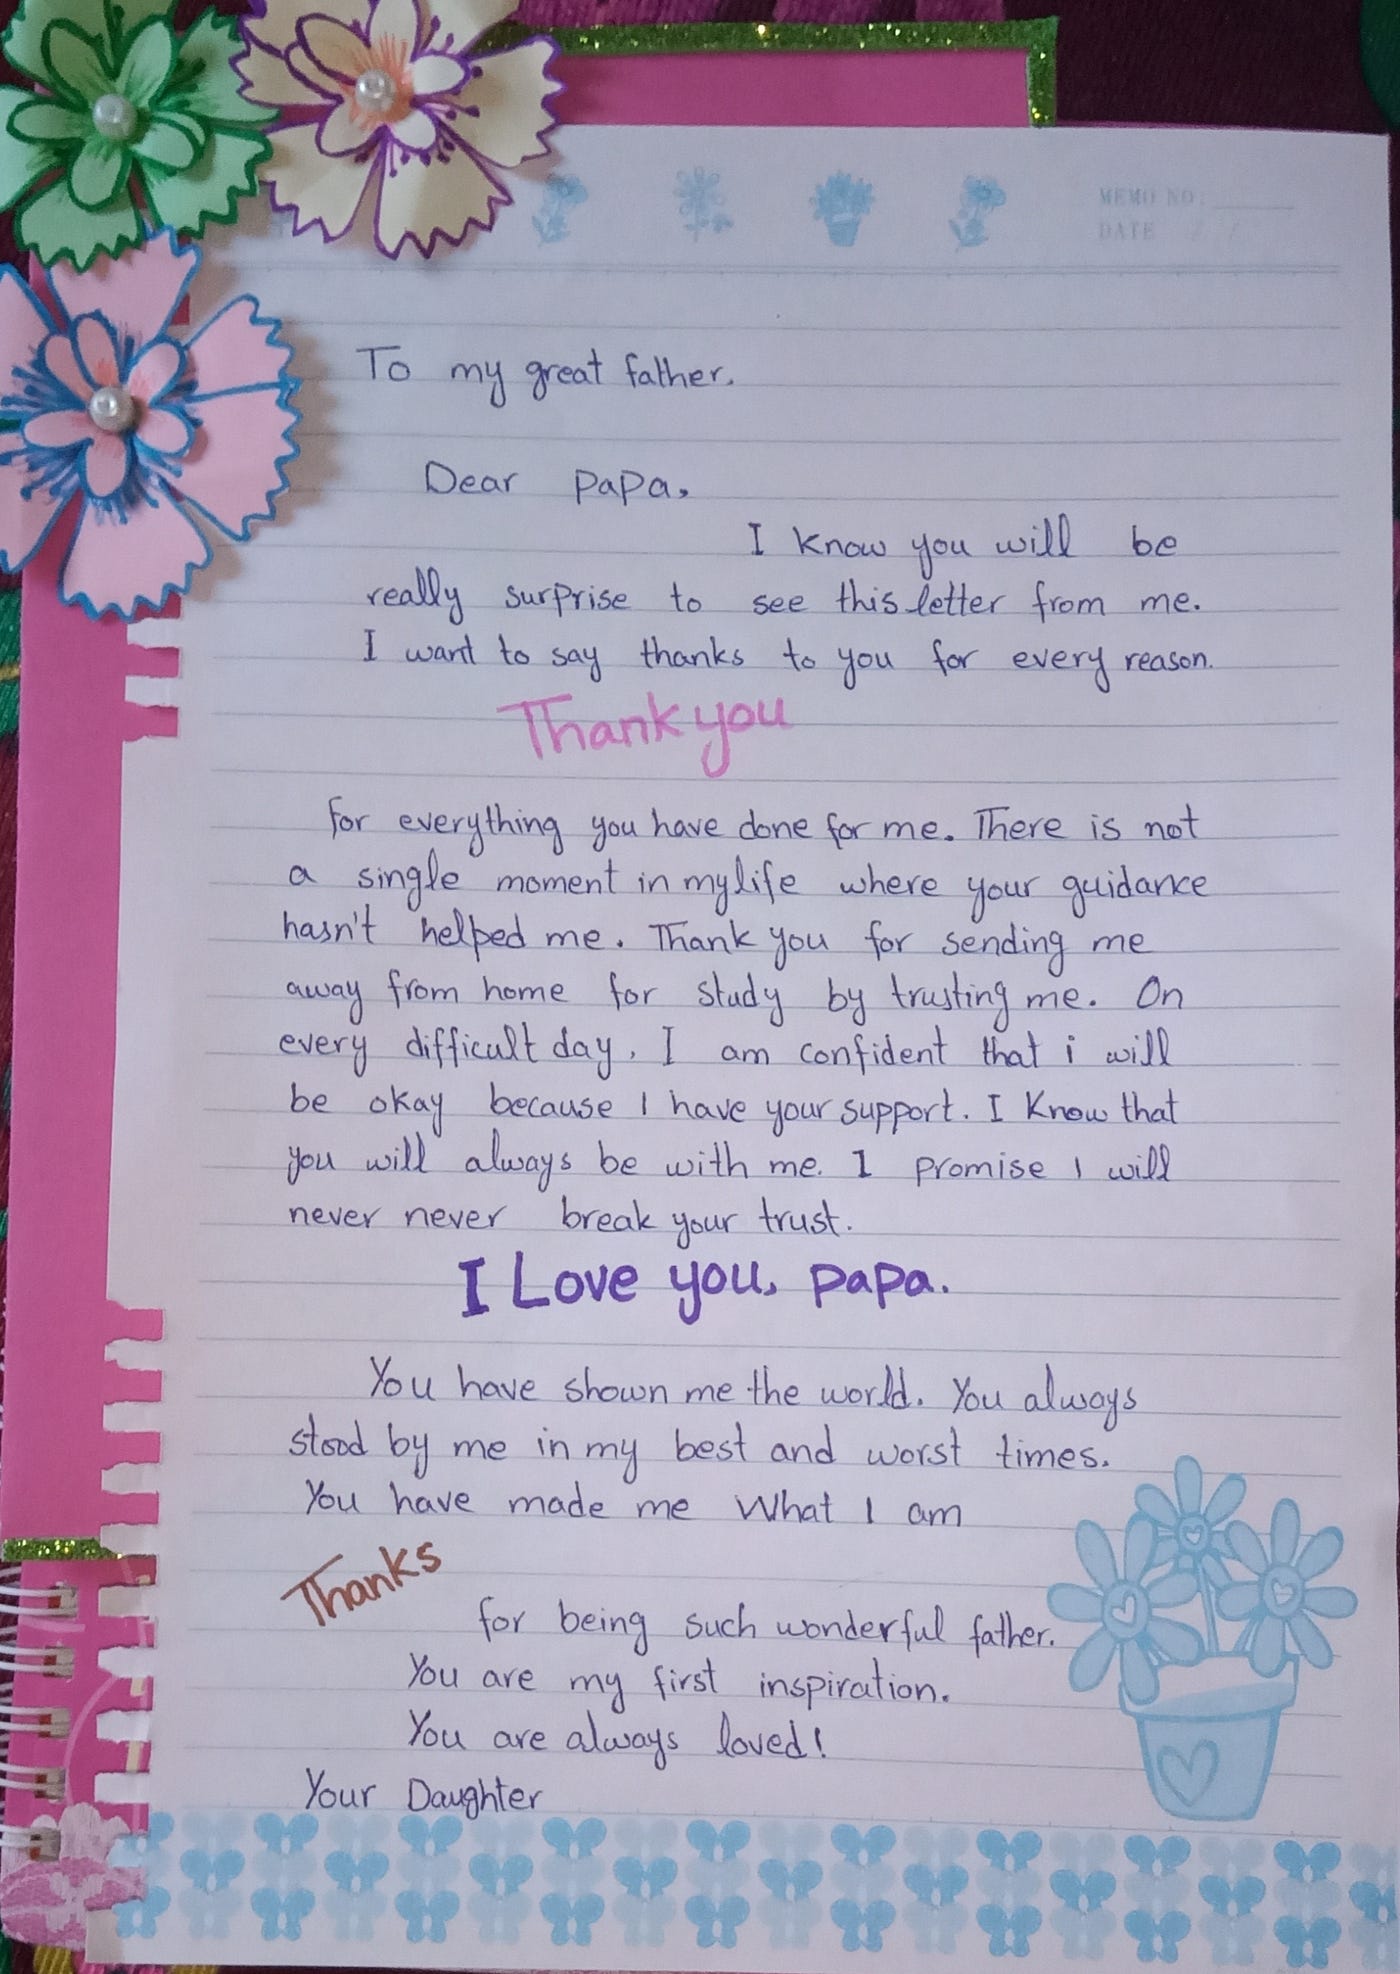 MEMO NO:
DATE / /
To my great father.
Dear papa,
I know you will be
really surprise to see this letter from me.
I want to say thanks to you for every reason.
Thank you
for everything you have done for me. There is not
a single moment in my life where your guidance
hasn't helped me. Thank you for sending me
away from home for study by trusting me. On
every difficult day, I am confident that i will
be okay because I have your support. I Know that
you will always be with me. I promise I will
never never break your trust.
I Love you, papa.
You have shown me the world. You always
stood by me in my best and worst times.
You have made me What I am
Thanks
for being such wonderful father.
You are my first inspiration.
You are always loved!
Your Daughter